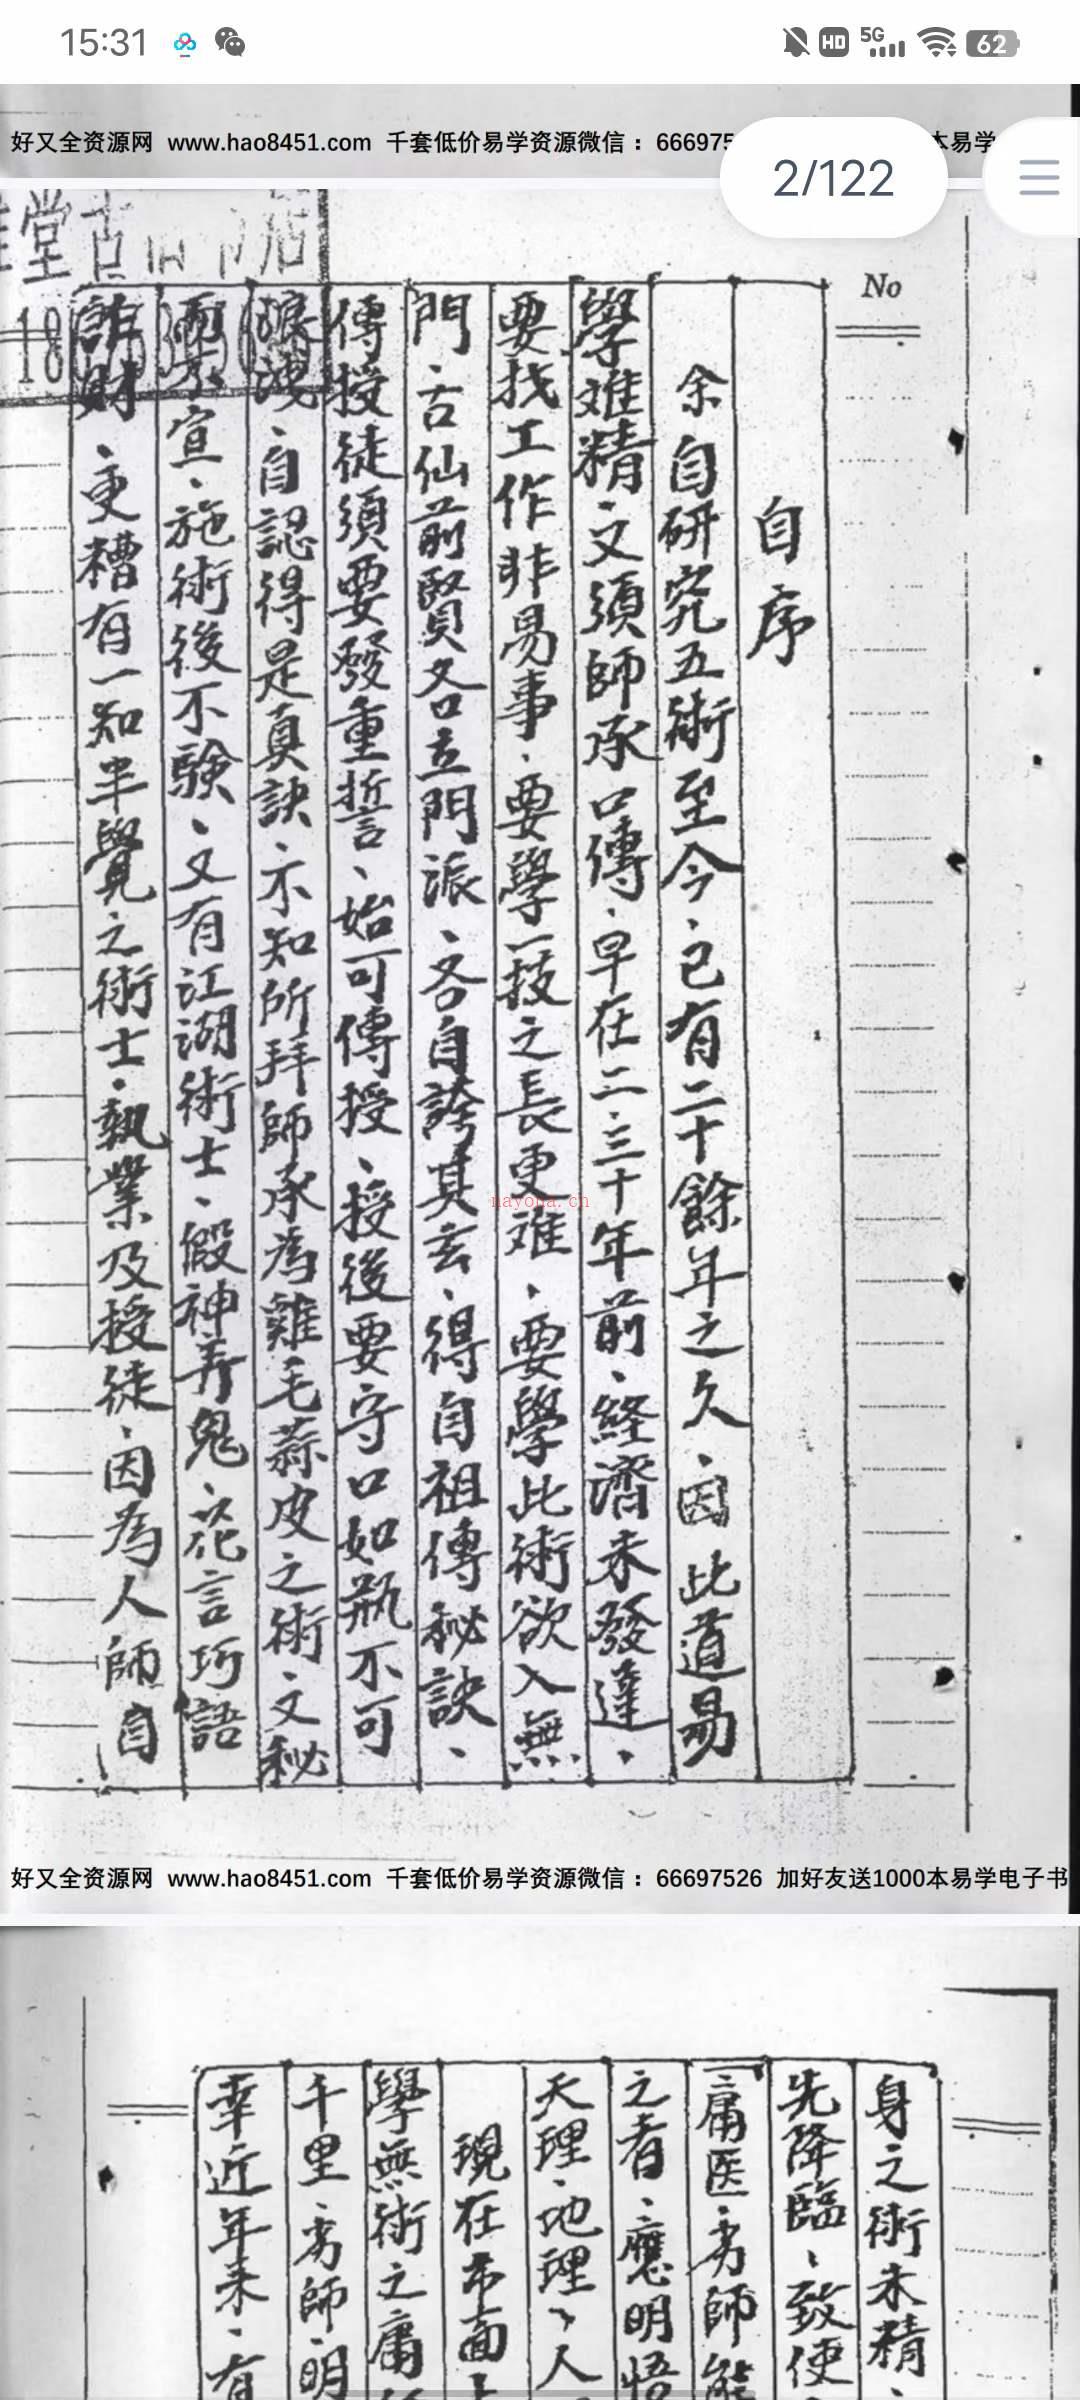 15:31
HD 5G 62
好又全资源网 www.hao8451.com 千套低价易学资源微信：666975
本易学
2/122
堂古
No
18
自序
余自研究五術至今、已有二十餘年之久、因此道易
學难精、文須師承口傳、早在二、三十年前、経濟未發達、
要找工作非易事、要學一技之長更难、要學此術欲入無
門、古仙前賢各立門派、各自誇其玄、得自祖傳秘訣、
傳授徒須要發重誓、始可傳授、授後要守口如瓶不可
洩、自認得是真訣、不知所拜師承為雞毛蒜皮之術、文秘
而不宣、施術後不験、又有江湖術士、假神弄鬼、花言巧語
詐財、更糟有一知半覺之術士、執業及授徒、因為人師自
nayona.cn
好又全资源网 www.hao8451.com 千套低价易学资源微信：66697526 加好友送1000本易学电子书
身之術未精、
先降臨、致使
庸医、劣師能
之者、應明悟
天理、地理、人
現在市面上
學無術之庸
千里、劣師、明
幸近年来、有